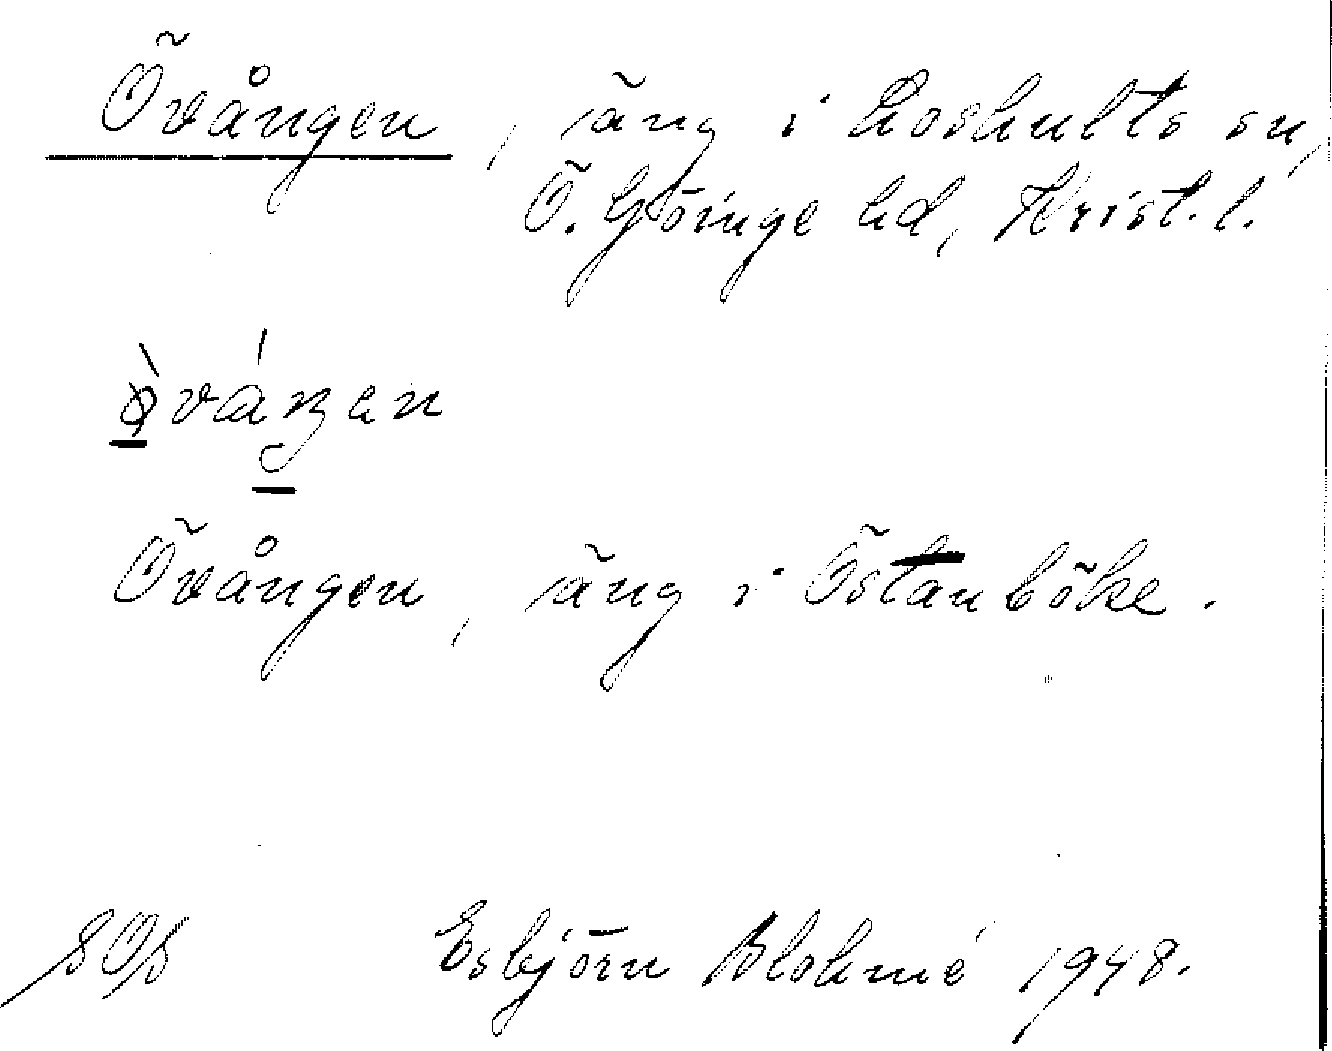 Övången, äng i Loshults sn,
Ö. Göinge hd, Krist. l.
Övången, äng i Östanböke.
SOS Esbjörn Blohmé 1948.